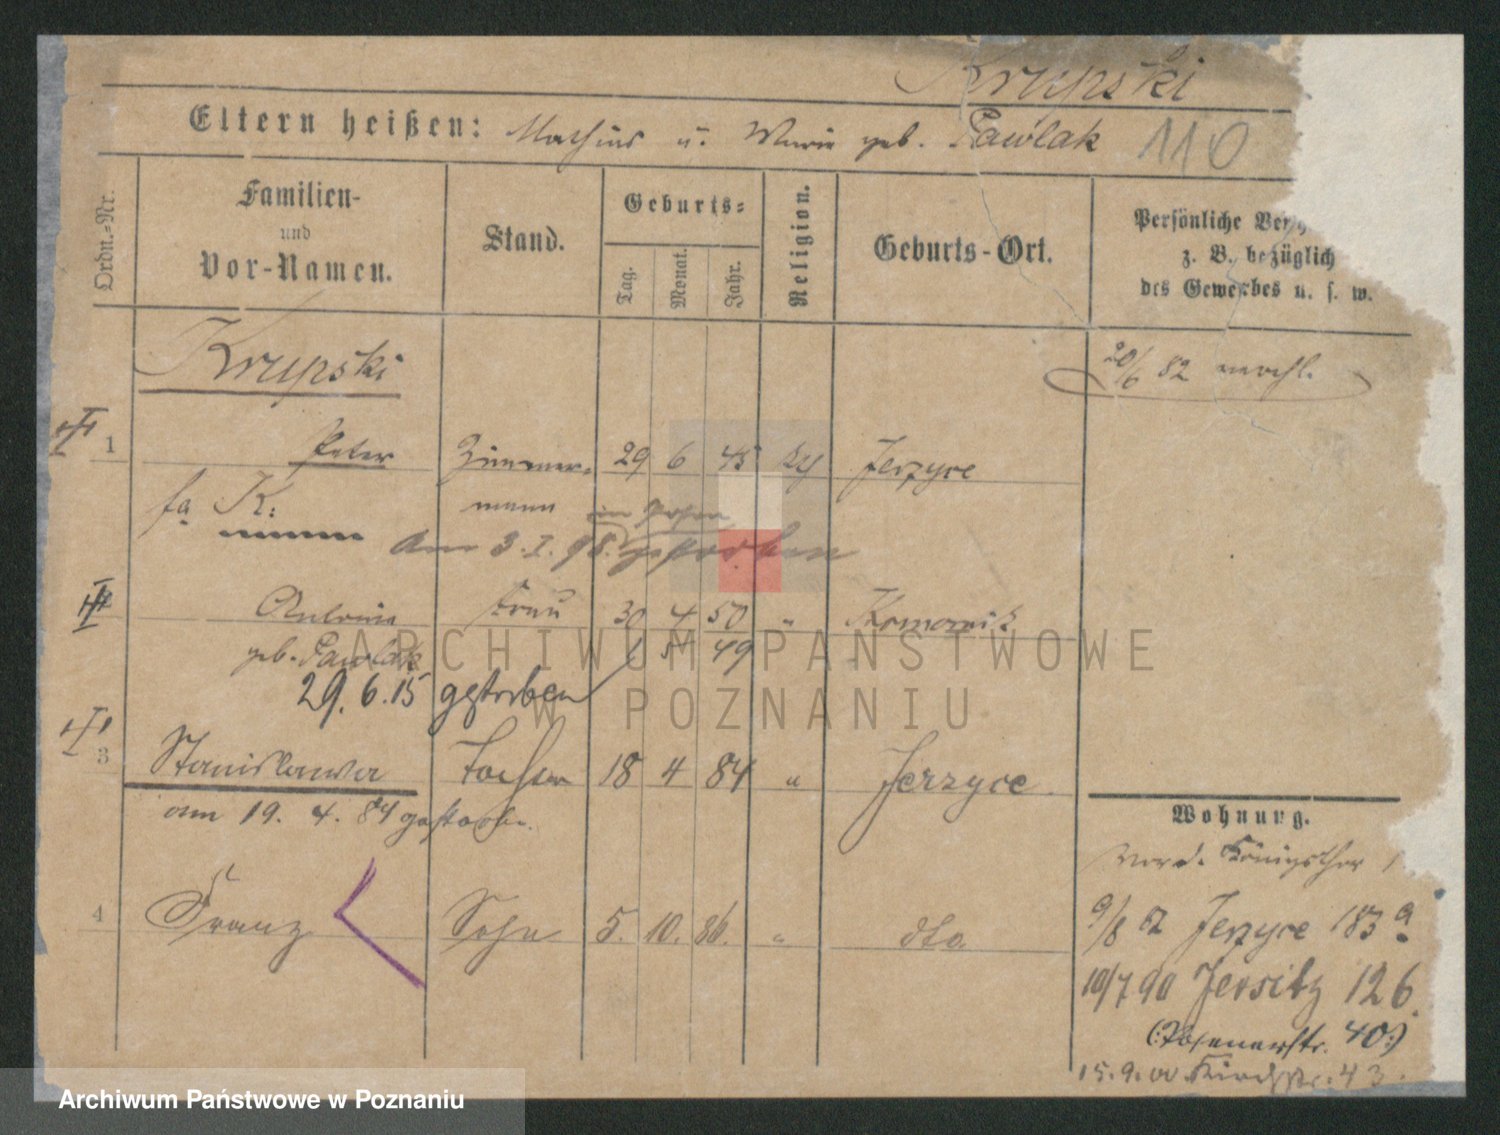 Krupski
Eltern heißen: Mathias u. Marie geb. Pawlak 110
Ordn.-Nr.
Familien-
und
Vor-Namen.
Stand.
Geburts-
Tag. Monat. Jahr.
Religion.
Geburts-Ort.
Persönliche
z. B. bezüglich
des Gewerbes u. s. w.
Krupski
20/6 82
1 Peter Zimmer- 29 6 45 Jerzyce
K. mann in Posen
am 3. I. 98. gestorben
Antonie Frau 30 4 50 " Komornik
geb. Pawlak 49
29. 6. 15 gestorben
3 Stanislawa Tochter 18 4 84 " Jerzyce
am 19. 4. 84 gestorben.
4 Franz Sohn 5. 10. 86. " dto
Wohnung.
Königsthor 1
9/8 Jerzyce 183a
10/7 90 Jersitz 126.
(Posenerstr. 40)
15. 9. 00 Kirchstr. 43.
ARCHIWUM PAŃSTWOWE
W POZNANIU
Archiwum Państwowe w Poznaniu